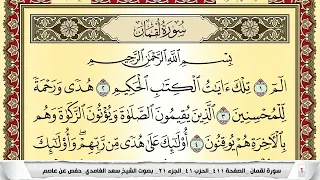 سُورَةُ لُقْمَانَ
بِسْمِ ٱللَّهِ ٱلرَّحْمَٰنِ ٱلرَّحِيمِ
الٓمٓ ١ تِلْكَ ءَايَٰتُ ٱلْكِتَٰبِ ٱلْحَكِيمِ ٢ هُدًى وَرَحْمَةً
لِّلْمُحْسِنِينَ ٣ ٱلَّذِينَ يُقِيمُونَ ٱلصَّلَوٰةَ وَيُؤْتُونَ ٱلزَّكَوٰةَ وَهُم
بِٱلْءَاخِرَةِ هُمْ يُوقِنُونَ ٤ أُو۟لَٰٓئِكَ عَلَىٰ هُدًى مِّن رَّبِّهِمْ ۖ وَأُو۟لَٰٓئِكَ
سورة لقمان . الصفحة ٤١١ . الحزب ٤١ . الجزء ٢١ . بصوت الشيخ سعد الغامدي . حفص عن عاصم
1